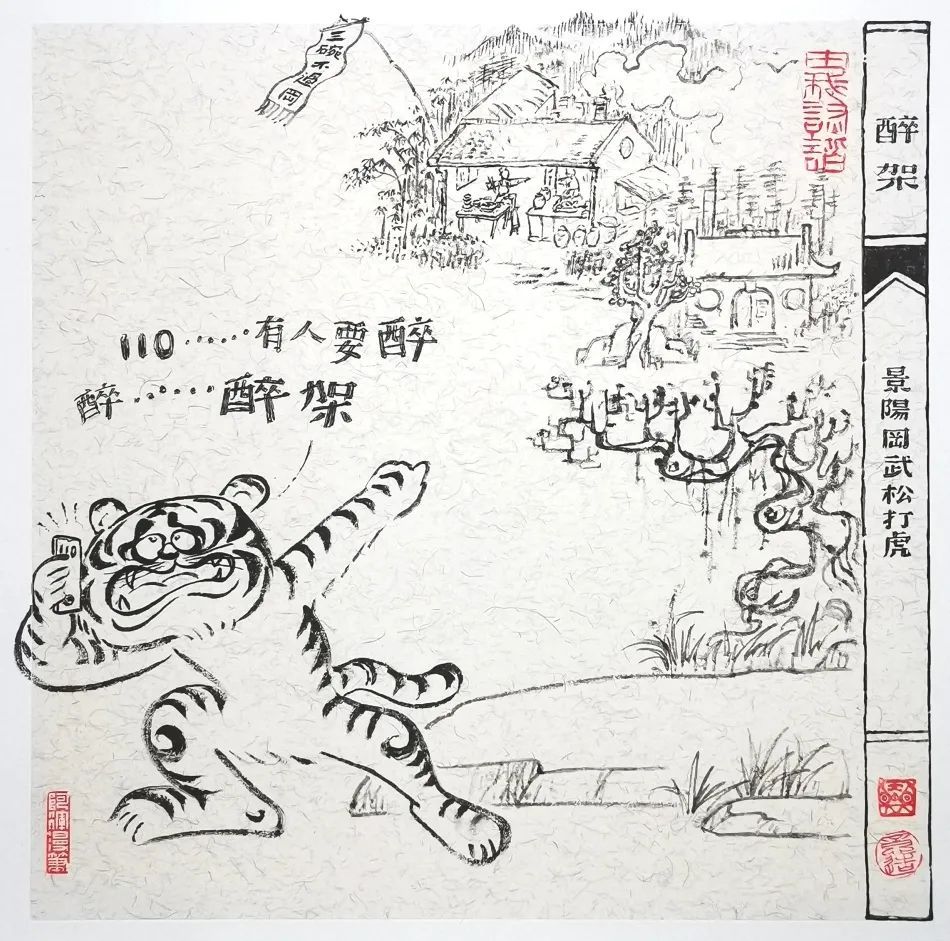 三碗不過岡
110······有人要醉
醉······醉架
醉架
景陽岡武松打虎